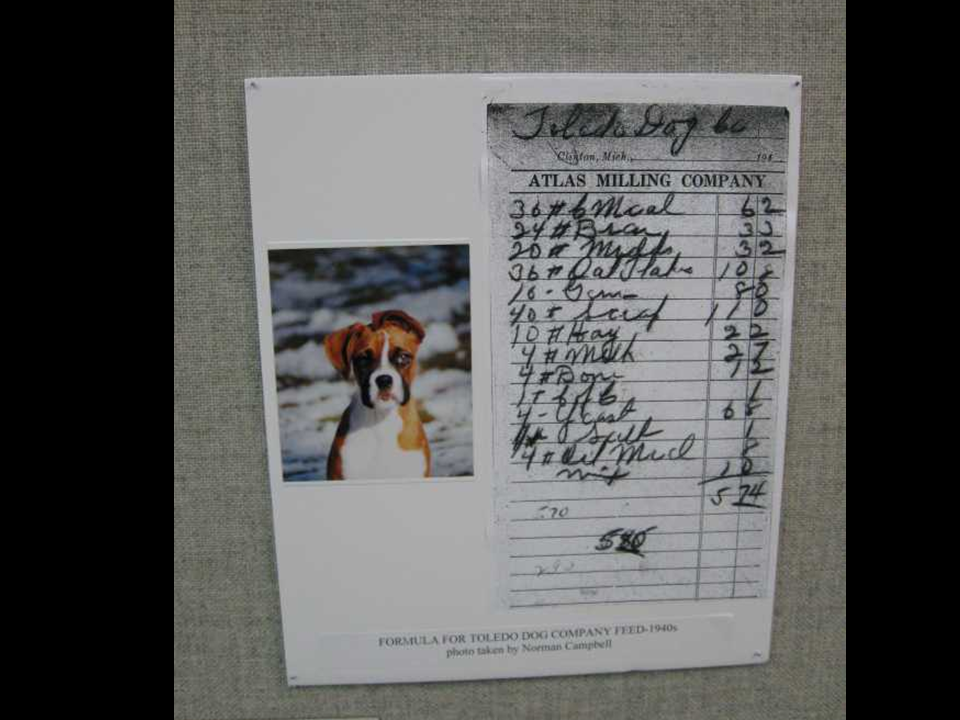 Toledo Dog Co
Clinton, Mich., 194
ATLAS MILLING COMPANY
36 # C Meal 62
24 # Bran 33
20 # Midds 32
36 # Oat Flakes 10 8
16 - Germ 80
40 # Scrap 1 10
10 # Hay 22
4 # Milk 27
4 # Bone 12
1 # 1
4 - Yeast 68
1 # Salt 1
4 # Oil Meal 8
mix 10
5 74
570
580
290
FORMULA FOR TOLEDO DOG COMPANY FEED-1940s
photo taken by Norman Campbell